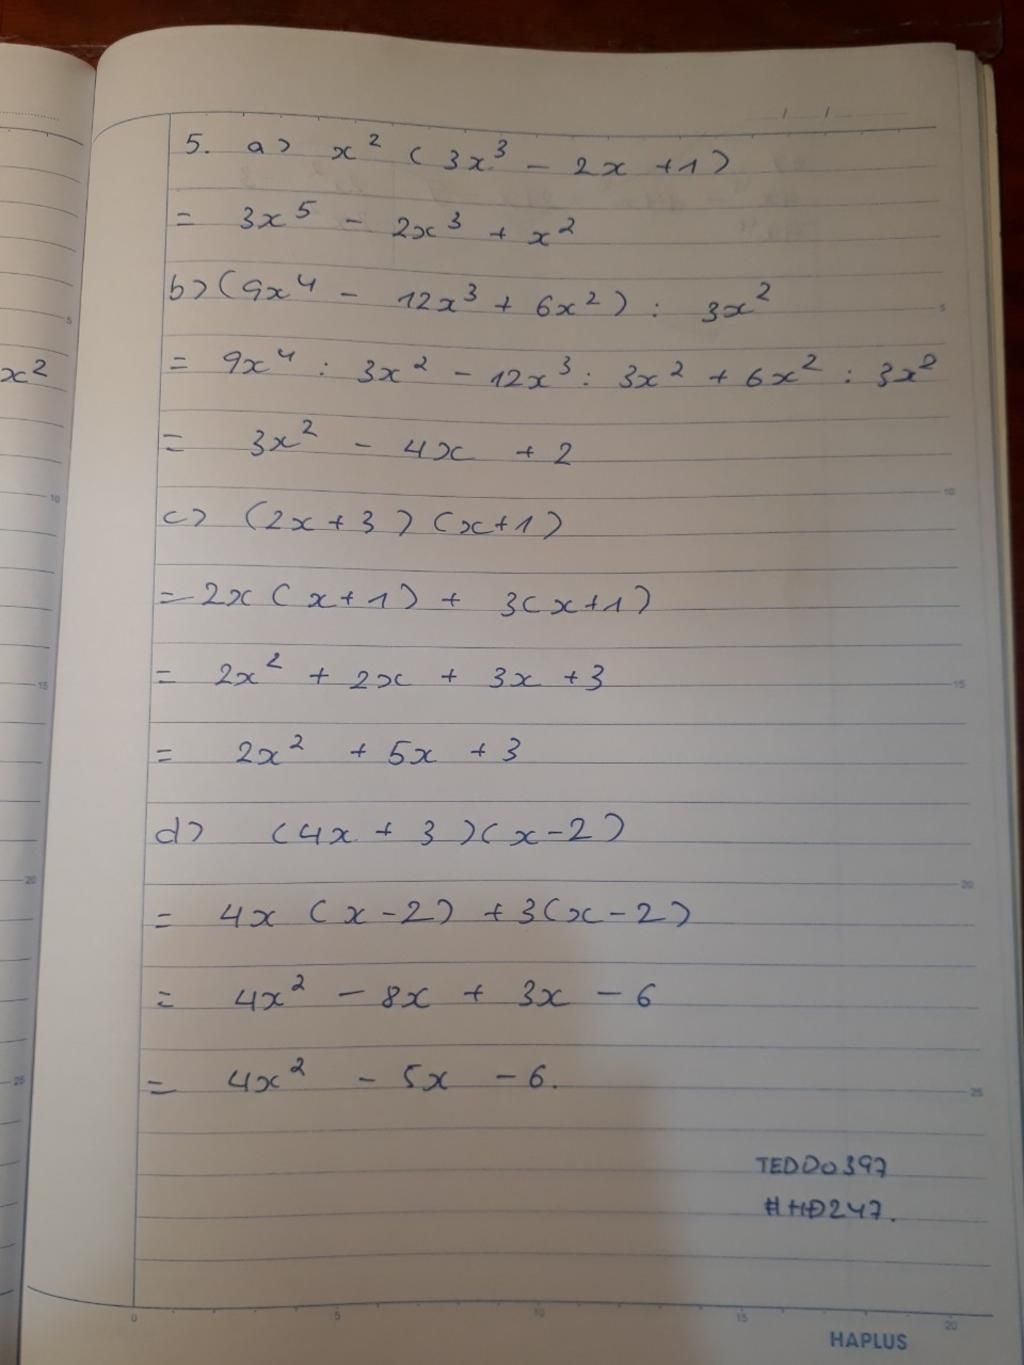 x²
5. a> x² (3x³ - 2x + 1)
= 3x⁵ - 2x³ + x²
b> (9x⁴ - 12x³ + 6x²) : 3x²
= 9x⁴ : 3x² - 12x³ : 3x² + 6x² : 3x²
= 3x² - 4x + 2
c> (2x + 3) (x + 1)
= 2x (x + 1) + 3(x + 1)
= 2x² + 2x + 3x + 3
= 2x² + 5x + 3
d> (4x + 3)(x - 2)
= 4x (x - 2) + 3(x - 2)
= 4x² - 8x + 3x - 6
= 4x² - 5x - 6.
TEDDo397
#HĐ247.
0 5 10 15 20
HAPLUS